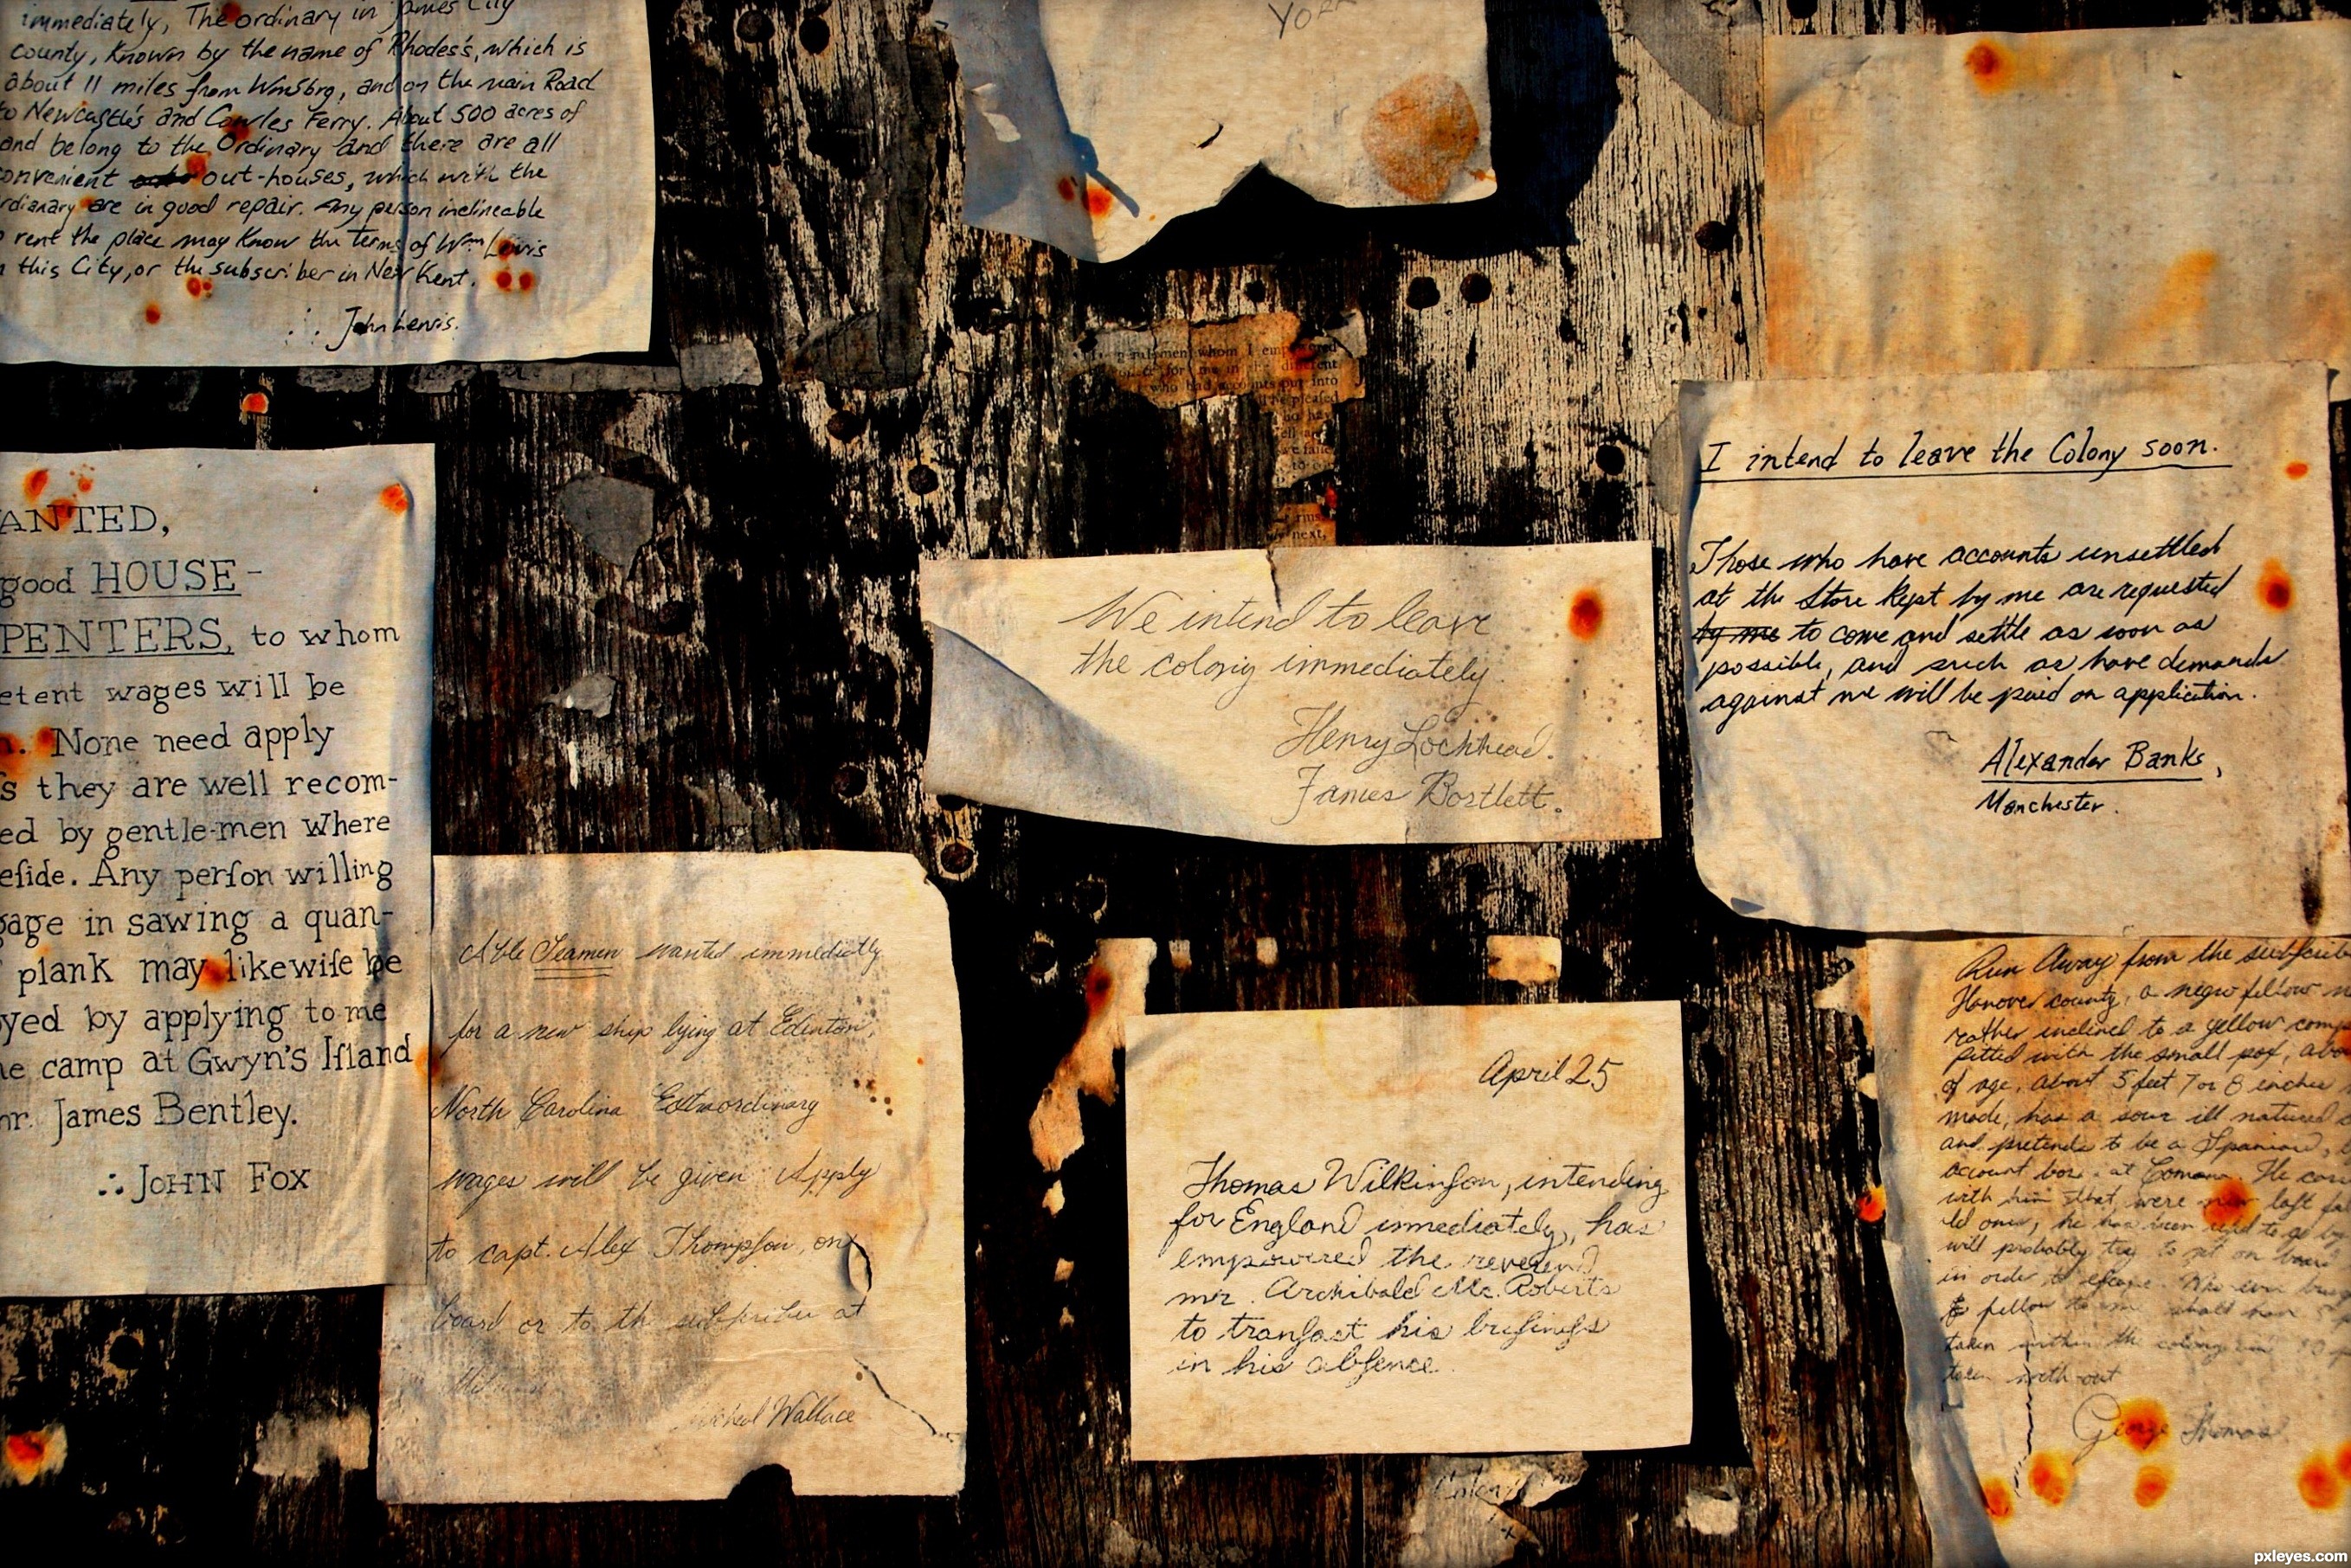 immediately, The ordinary in James City
county, Known by the name of Rhodes's, which is
about 11 miles from Wmsbrg, and on the main Road
to Newcastle's and Cowles Ferry. About 500 acres of
and belong to the Ordinary and there are all
onvenient out-houses, which with the
rdianary are in good repair. Any person inclineable
rent the place may know the terms of Wm Lewis
this City, or the subscriber in New Kent.
John Lewis.
YORK
whom I empowered
for me in the different
who had accounts put into
be pleased
next,
ANTED,
good HOUSE-
PENTERS, to whom
etent wages will be
None need apply
s they are well recom-
ed by gentle-men where
eſide. Any perſon willing
gage in sawing a quan-
plank may likewiſe be
oyed by applying to me
he camp at Gwyn's Iſland
mr. James Bentley.
∴ JOHN FOX
We intend to leave
the colony immediately.
Henry Lochhead.
James Bartlett.
I intend to leave the Colony soon.
Those who have accounts unsettled
at the Store Kept by me are requested
by me to come and settle as soon as
possible, and such as have demands
against me will be paid on application.
Alexander Banks,
Manchester.
Able Seamen wanted immediatly
for a new ship lying at Edenton,
North Carolina Extraordinary
wages will be given Apply
to capt. Alex Thompſon, on
board or to the subſcriber at
Wallace
April 25
Thomas Wilkinſon, intending
for England immediately, has
empowered the reverend
mr. Archibald Mc. Roberts
to tranſact his buſineſs
in his abſence.
Run Away from the subſcrib
Hanover county, a negro fellow
rather inclined to a yellow comp
pitted with the small pox, abo
of age, about 5 feet 7 or 8 inches
made, has a sour ill natured
and pretends to be a Spaniard,
account at He
with him that were
old ones, he has been used to go by
will probably try to get on board
in order to eſcape. Who ever
fellow to me shall have
taken within the colony
taken with-out
George Thomas
pxleyes.com